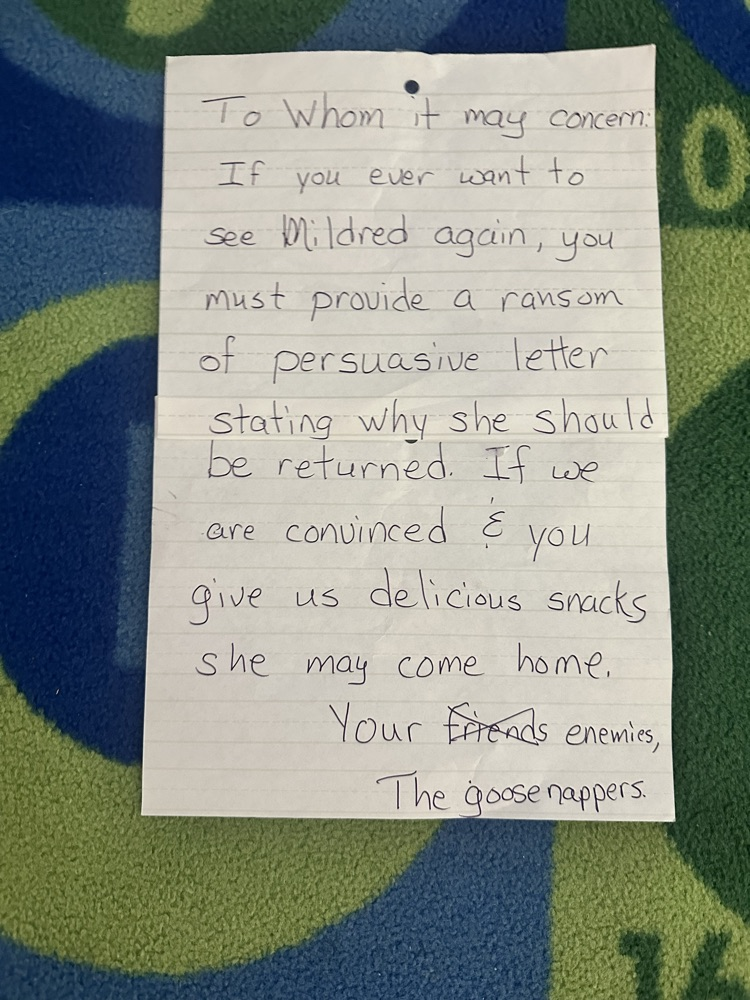 To Whom it may concern:
If you ever want to
see Mildred again, you
must provide a ransom
of persuasive letter
stating why she should
be returned. If we
are convinced & you
give us delicious snacks
she may come home.
Your friends enemies,
The goosenappers.
0
16